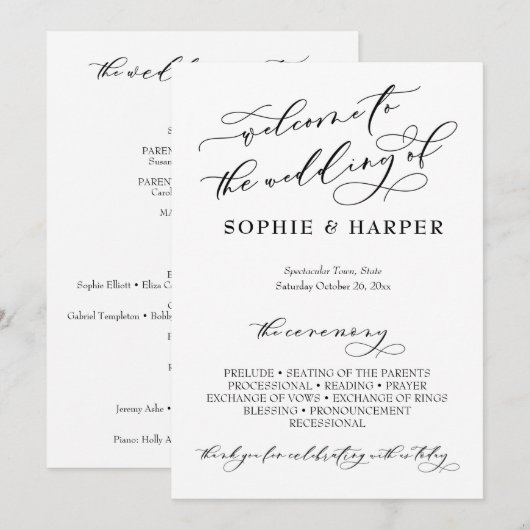 welcome to
the wedding of
SOPHIE & HARPER
Spectacular Town, State
Saturday October 26, 20xx
the ceremony
PRELUDE • SEATING OF THE PARENTS
PROCESSIONAL • READING • PRAYER
EXCHANGE OF VOWS • EXCHANGE OF RINGS
BLESSING • PRONOUNCEMENT
RECESSIONAL
thank you for celebrating with us today
the wed
S
PAREN
Susan
PAREN
Carol
MA
E
Sophie Elliott • Eliza C
Gabriel Templeton • Bobby
Jeremy Ashe •
Piano: Holly A